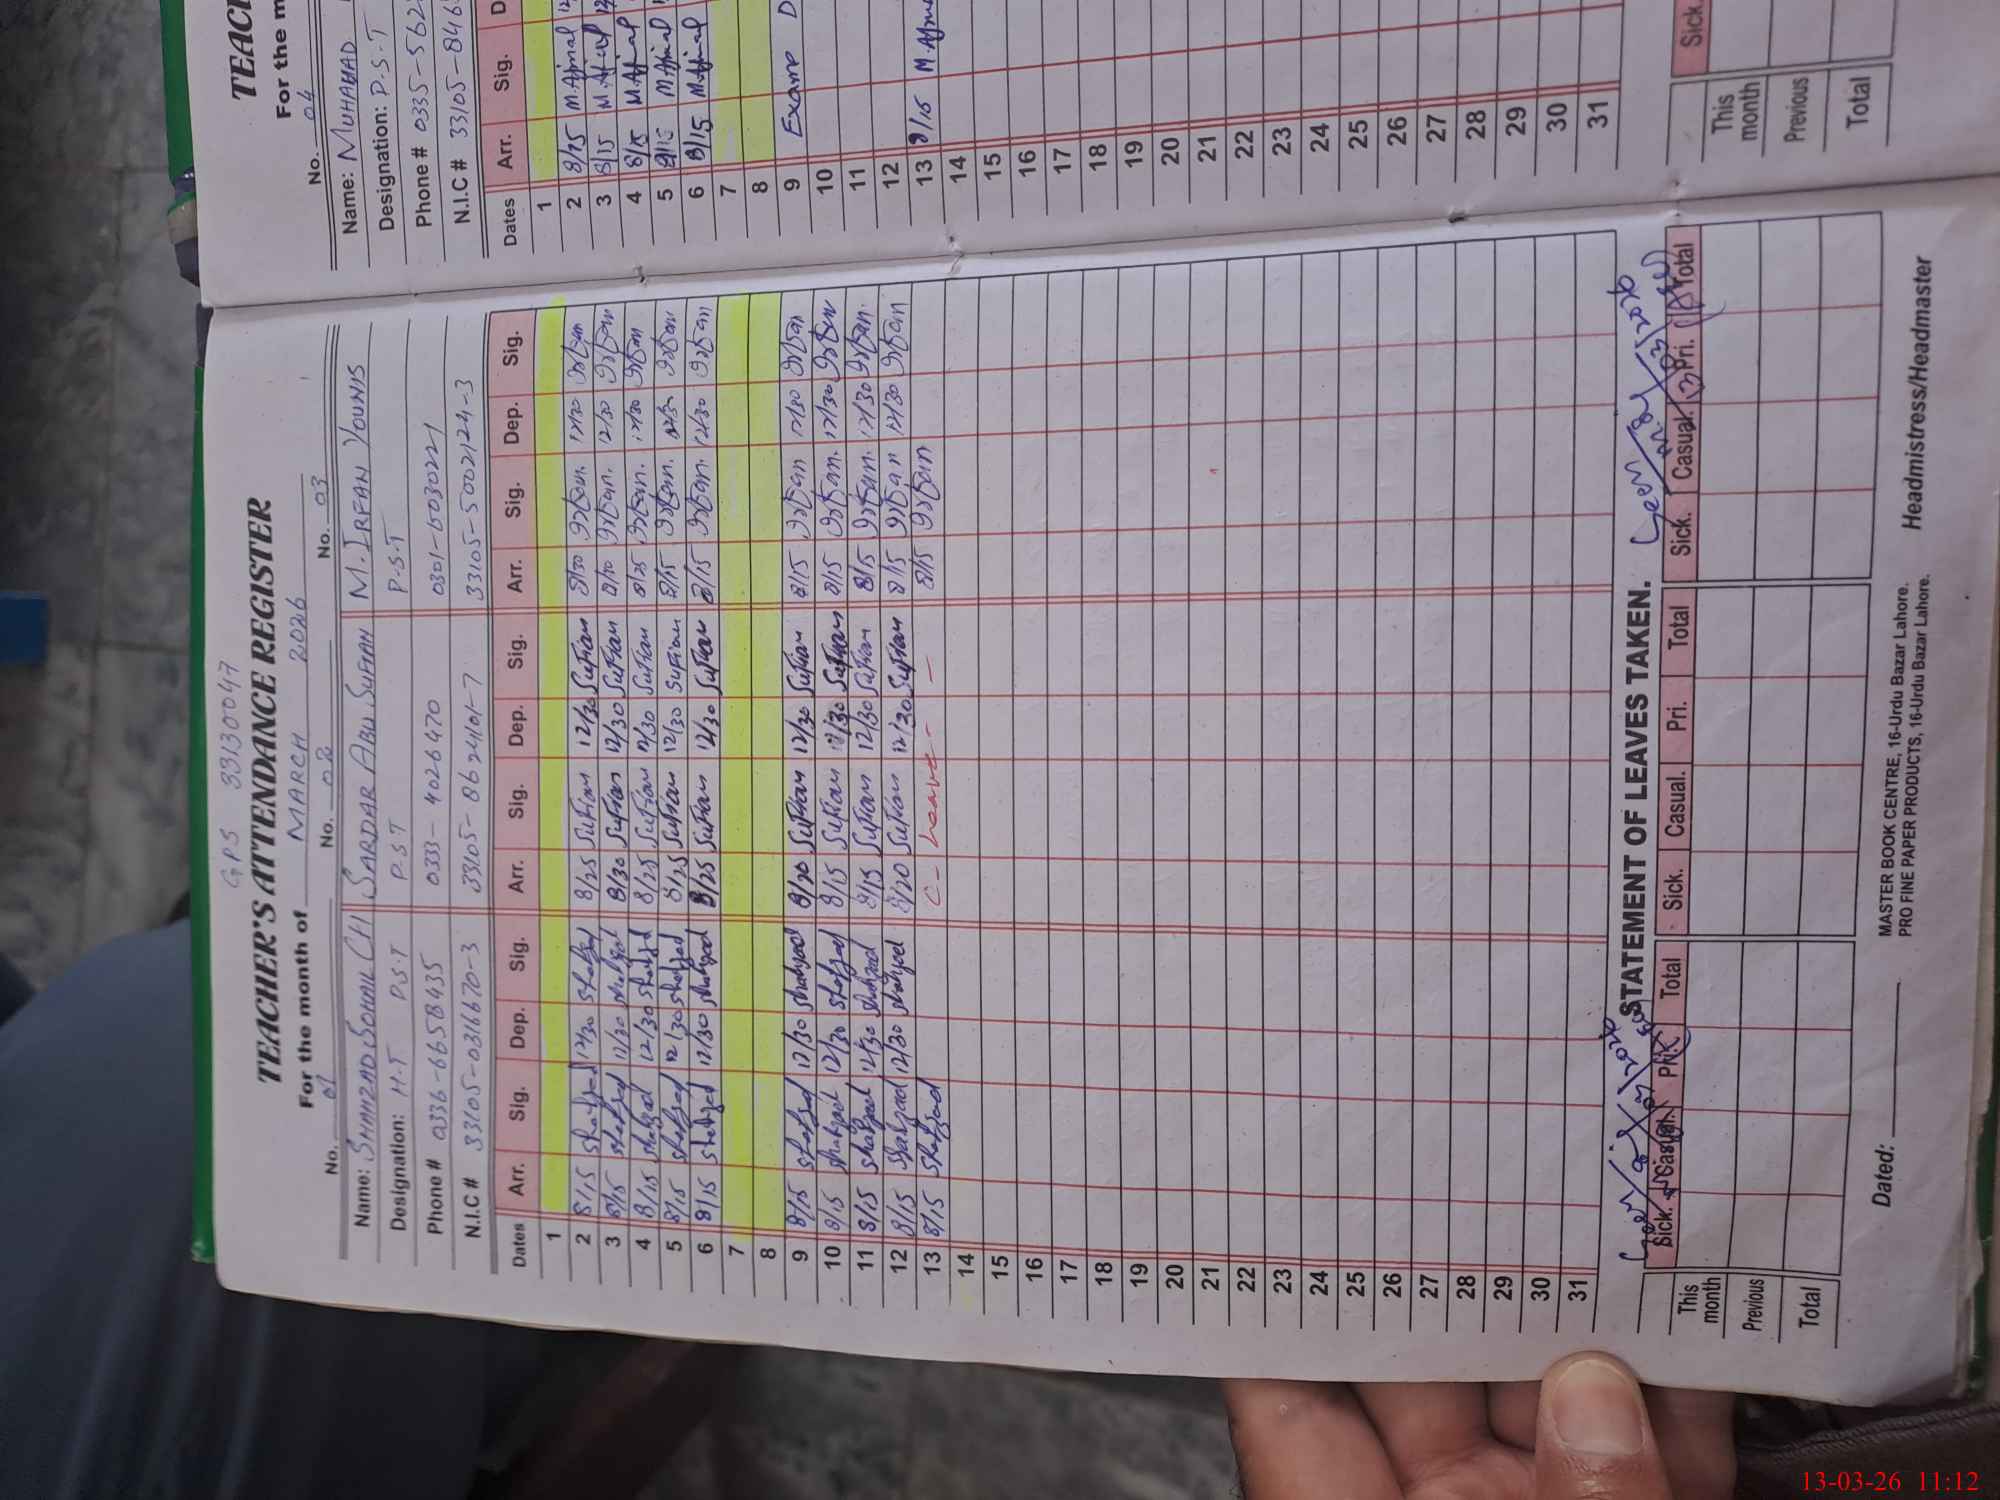 GPS 33130047
TEACHER'S ATTENDANCE REGISTER
For the month of MARCH 2026
No. 01 No. 02 No. 03
Name: SHAHZAD SOHAIL CH SARDAR ABU SUFIAN M. IRFAN YOUNIS
Designation: H.T P.S.T P.S.T P.S.T
Phone # 0336-6658435 0333-4026470 0301-6030221
N.I.C # 33105-0316670-3 33105-8624101-7 33105-5002124-3
Dates Arr. Sig. Dep. Sig. Arr. Sig. Dep. Sig. Arr. Sig. Dep. Sig.
1
2 8/15 Shahzad 12/30 Shahzad 8/25 Sufian 12/30 Sufian 8/30 12/30
3 8/15 Shahzad 12/30 Shahzad 8/30 Sufian 12/30 Sufian 8/20 12/30
4 8/15 Shahzad 12/30 Shahzad 8/25 Sufian 12/30 Sufian 8/25 12/30
5 8/15 Shahzad 12/30 Shahzad 8/25 Sufian 12/30 Sufian 8/15 12/30
6 8/15 Shahzad 12/30 Shahzad 8/25 Sufian 12/30 Sufian 8/15 12/30
7
8
9 8/15 Shahzad 12/30 Shahzad 8/20 Sufian 12/30 Sufian 8/15 12/30
10 8/15 Shahzad 12/30 Shahzad 8/15 Sufian 12/30 Sufian 8/15 12/30
11 8/15 Shahzad 12/30 Shahzad 8/15 Sufian 12/30 Sufian 8/15 12/30
12 8/15 Shahzad 12/30 Shahzad 8/20 Sufian 12/30 Sufian 8/15 12/30
13 8/15 Shahzad C - Leave - - 8/15
14
15
16
17
18
19
20
21
22
23
24
25
26
27
28
29
30
31
STATEMENT OF LEAVES TAKEN.
Sick. Casual. Pri. Total Sick. Casual. Pri. Total Sick. Casual. Pri. Total
This month
Previous
Total
MASTER BOOK CENTRE, 16-Urdu Bazar Lahore.
PRO FINE PAPER PRODUCTS, 16-Urdu Bazar Lahore.
Dated: Headmistress/Headmaster
TEAC
For the m
No. 04
Name: MUHAMMAD
Designation: P.S.T
Phone # 0335-562
N.I.C # 33105-8416
Dates Arr. Sig. D
1
2 8/15 M.Ajmal 12
3 8/15 M.Ajmal
4 8/15 M.Ajmal
5 8/15 M.Ajmal
6 8/15 M.Ajmal
7
8
9 Exams D
10
11
12
13 8/15 M.Ajma
14
15
16
17
18
19
20
21
22
23
24
25
26
27
28
29
30
31
Sick.
This month
Previous
Total
13-03-26 11:12